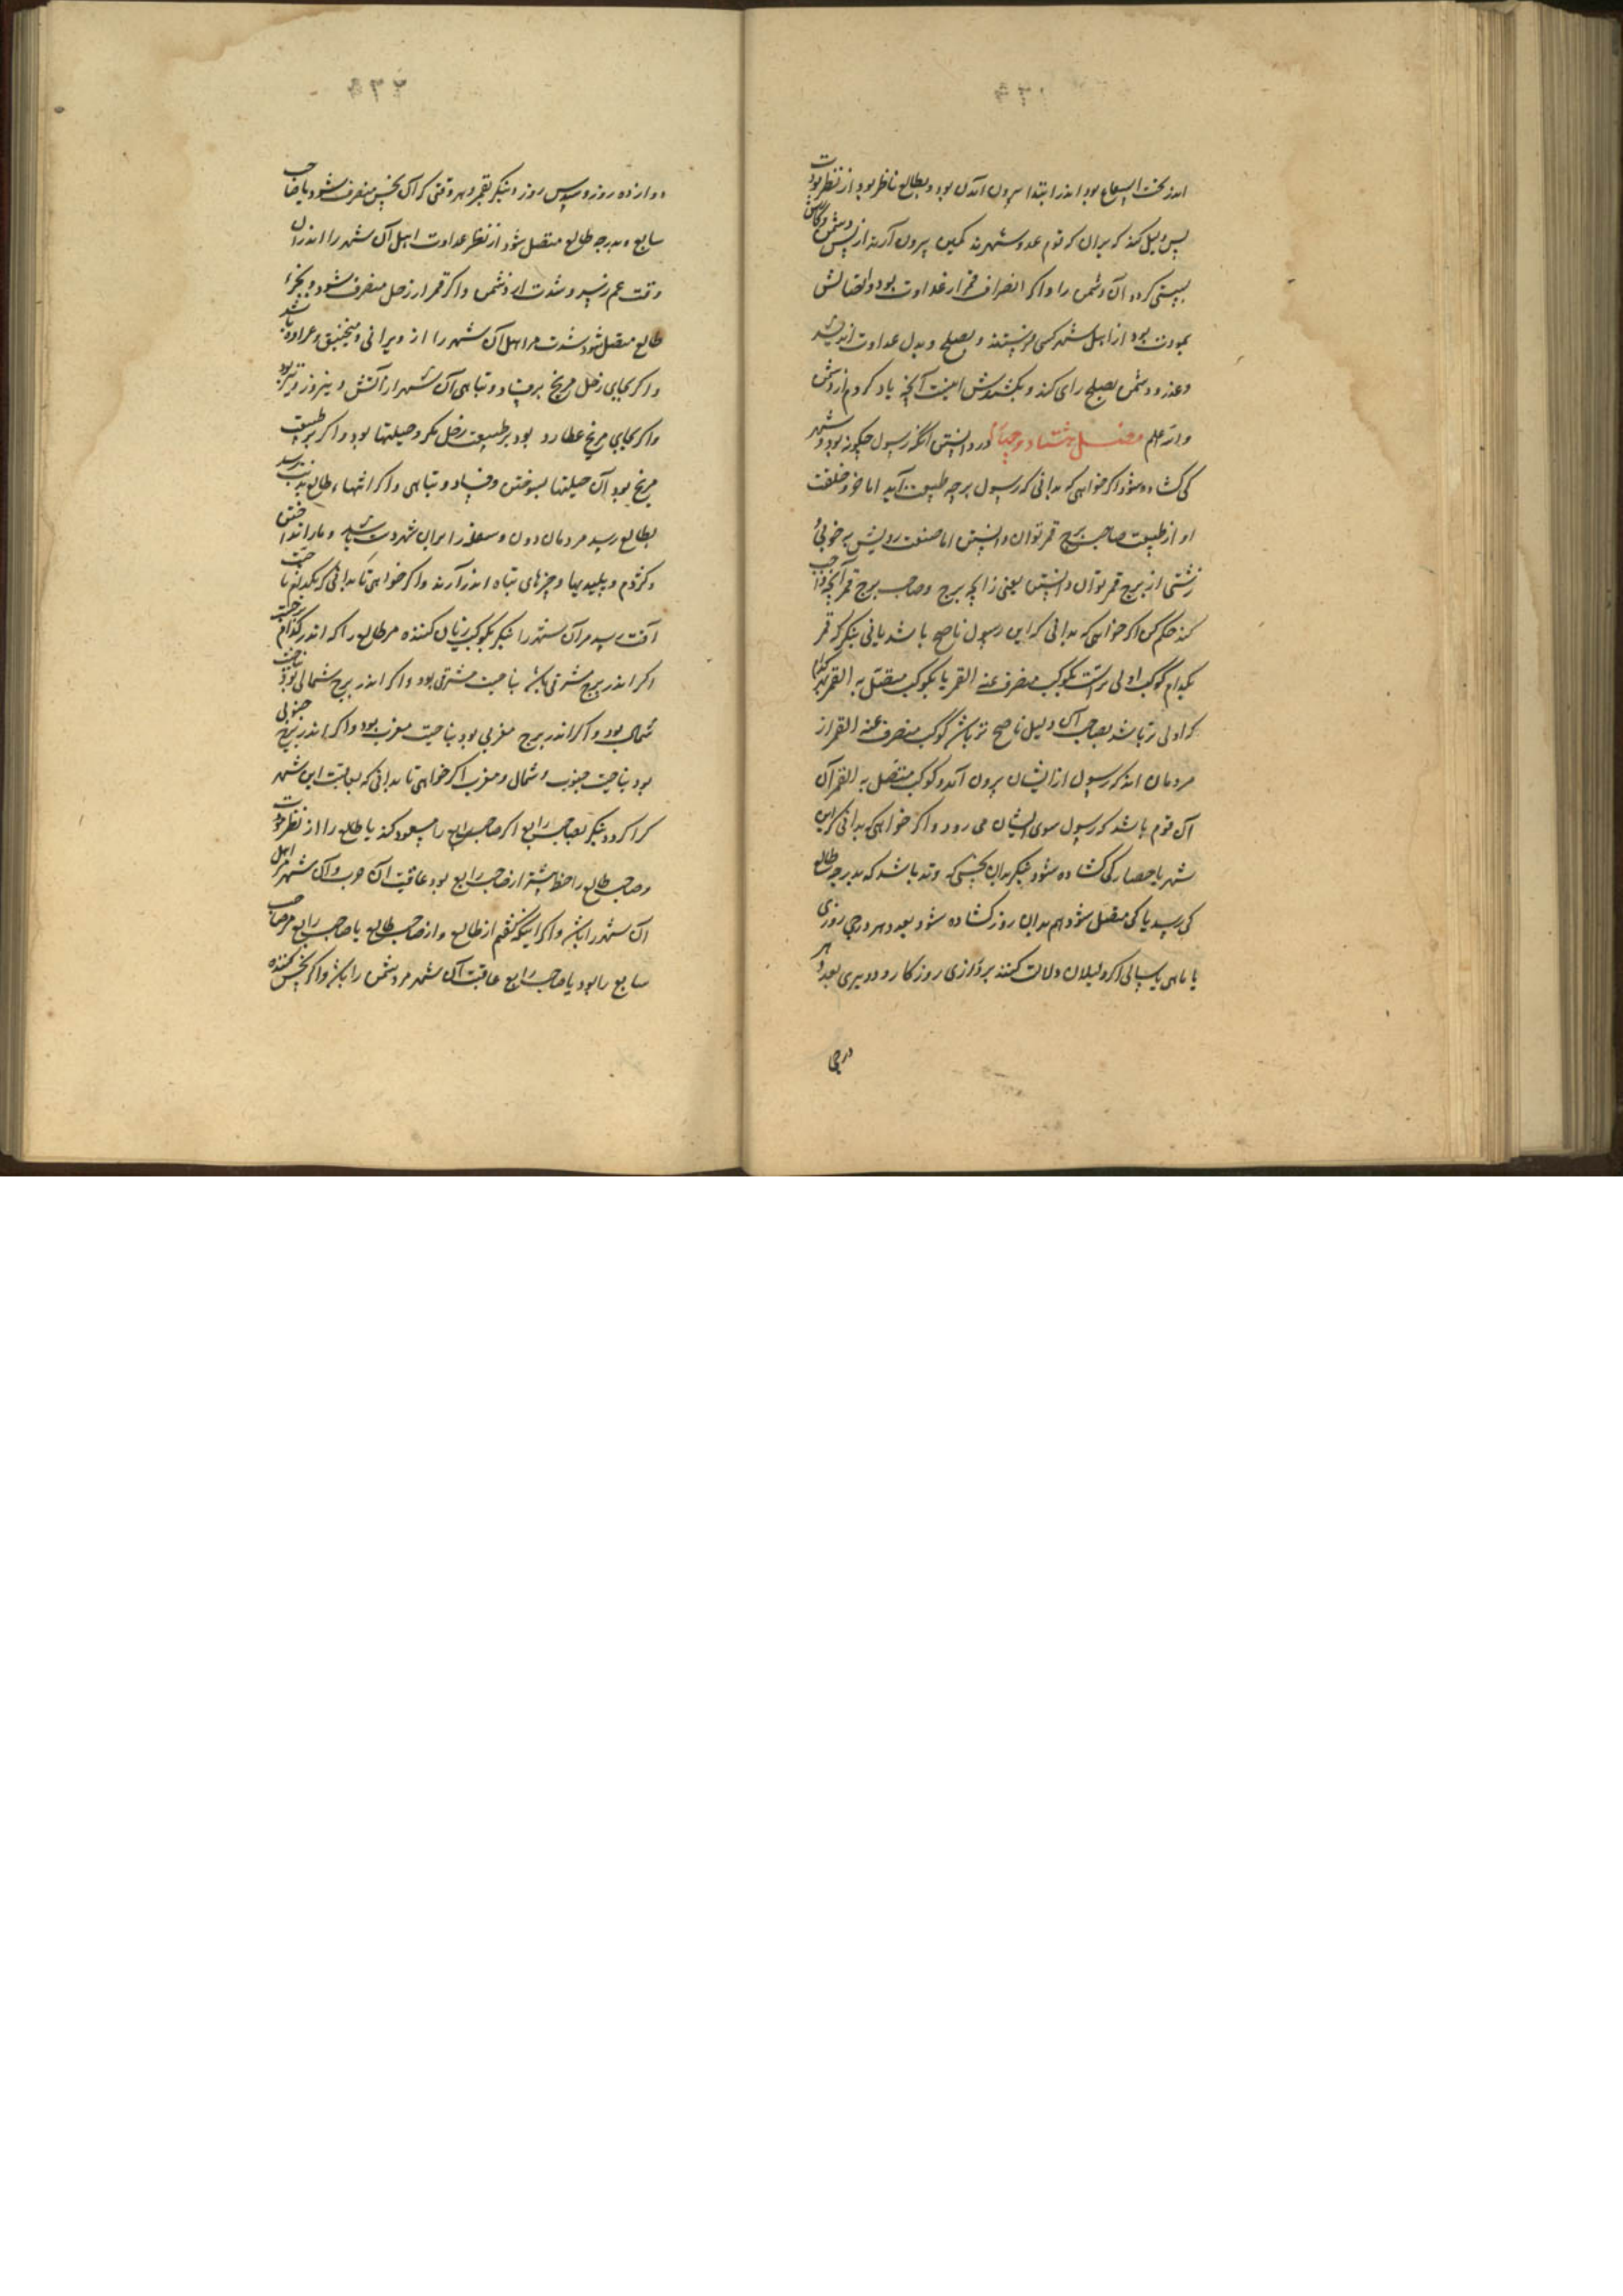 اندر تحت الشعاع بود اندر ابتدا بیرون آمدن بود و بطالع ناظر بود از نظر مودت
پس دلیل کند که بران که قوم عدو شهرند کمین بیرون آرند از پس دشمن و
کرد آن دشمن را و اکر انصراف قمر از عداوت بود و اتصالش
بمودت بود از اهل شهر کسی فرستند و بصلح و بدل عداوت اندیشد
و عذر و دشمن بصلح رای کند و اینست آنچه یاد کردم از دشمن
و از علم فصل هشتاد و چهار در دانستن آنکه رسول چکونه بود و شهر
کی کشاده شود اکر خواهی که بدانی که رسول بر چه طبیعت آید اما خو و خلقت
او از طبیعت صاحب برج قمر توان دانستن اما صنعت رویش بر خوبی
زشتی از برج قمر توان دانستن یعنی زانچه برج و صاحب برج قمر آنچه واجب
کند حکم کن اکر خواهی که بدانی که این رسول ناصح باشد یا نی بنکر که قمر
بکدام کوکب اولی تر است بکوکب منصرف عنه القمر یا بکوکب متصل به القمر بهر کدام
که اولی تر باشد بصاحب آن دلیل ناصح تر باشد کوکب منصرف عنه القمر از
مردمان اند که رسول از ایشان بیرون آمد و کوکب متصل به القمر آن
آن قوم باشد که رسول سوی ایشان می رود و اکر خواهی که بدانی که این
شهر یا حصار کی کشاده شود بنکر بدان نحسی که وتد باشد که بدرجه طالع
کی رسد یا کی متصل شود هم بدان روز کشاده شود بعدد هر درجی روزی
یا ماهی یا سالی اکر دلیلان دلالت کنند بر درازی روزکار و دیری بعدد هر
درجی
دوازده روز و سپس روز و بنکر بقمر و هر وقتی که آن نحس منصرف شود با صاحب
سابع و بدرجه طالع متصل شود از نظر عداوت اهل آن شهر را اندران
وقت غم رسد و شدت از دشمن و اکر قمر از زحل منصرف شود و بجزء
طالع متصل شود شدت مر اهل آن شهر را از ویرانی و منجنیق و عراده باشد
و اکر بجای زحل مریخ بر فساد و تباهی آن شهر از آتش و نیروز و تیر بود
و اکر بجای مریخ عطارد بود بر طبیعت زحل مکر و حیلتها بود و اکر بر طبیعت
مریخ بود آن حیلتها بسوختن و فساد و تباهی و اکر انتهاء طالع بذنب رسد
بطالع رسد مردمان دون و سفله را بران شهر دست باشد و مار انداختن
و کژدم و پلیدیها و چیزهای تباه اندر آرند و اکر خواهی تا بدانی که بکدام ناحیت
آفت رسد مر آن شهر را بنکر بکوکب زیان کننده مر طالع را که اندر کدام برجست
اکر اندر برج مشرقی باشد بناحیت مشرق بود و اکر اندر برج شمالی بود بناحیت
شمال بود و اکر اندر برج مغربی بود بناحیت مغرب بود و اکر اندر برج جنوبی
بود بناحیت جنوب و شمال و مغرب اکر خواهی تا بدانی که بعاقبت این شهر
کرا کردد بنکر بصاحب رابع اکر صاحب رابع را مسعود کند یا طالع را از نظر مودت
و صاحب طالع را حظ بیشتر از صاحب رابع بود عاقبت آن حرب و آن شهر مر اهل
آن شهر را باشد و اکر اینکه کفتم از طالع و از صاحب طالع یا صاحب رابع مر صاحب
سابع را بود یا صاحب رابع عاقبت آن شهر مر دشمن را باشد و اکر نحس کننده